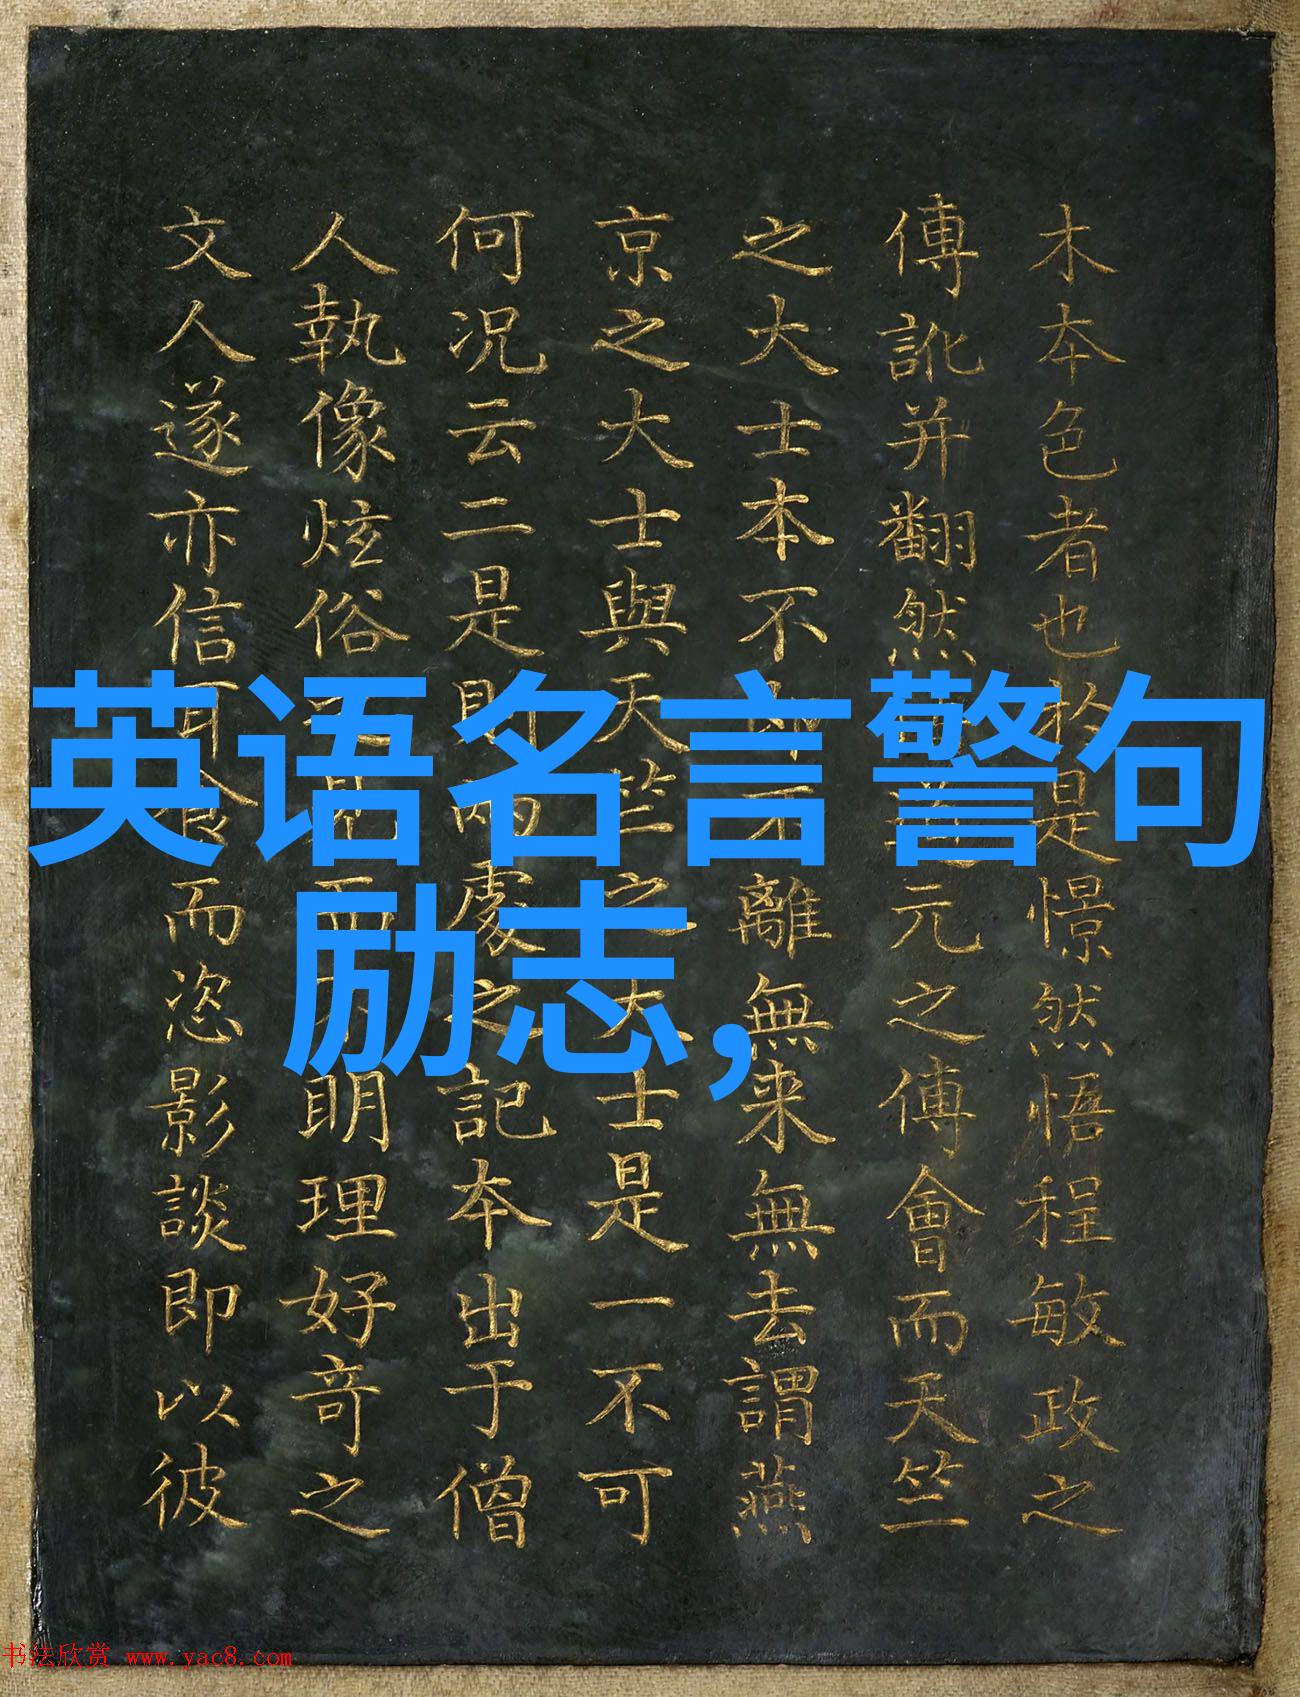 英语名言警句
励志,
木本色者也於是憬然悟程敏政之
傅訛并翻然元之傅會而天竺
之大士本不即不離無来無去謂燕
京之大士與天竺之大士是一不可
何况云二是則兩處之記本出于僧
人執像炫俗見而不明理好奇之
文人遂亦信耳食而恣影談即以彼
书法欣赏 www.yac8.com